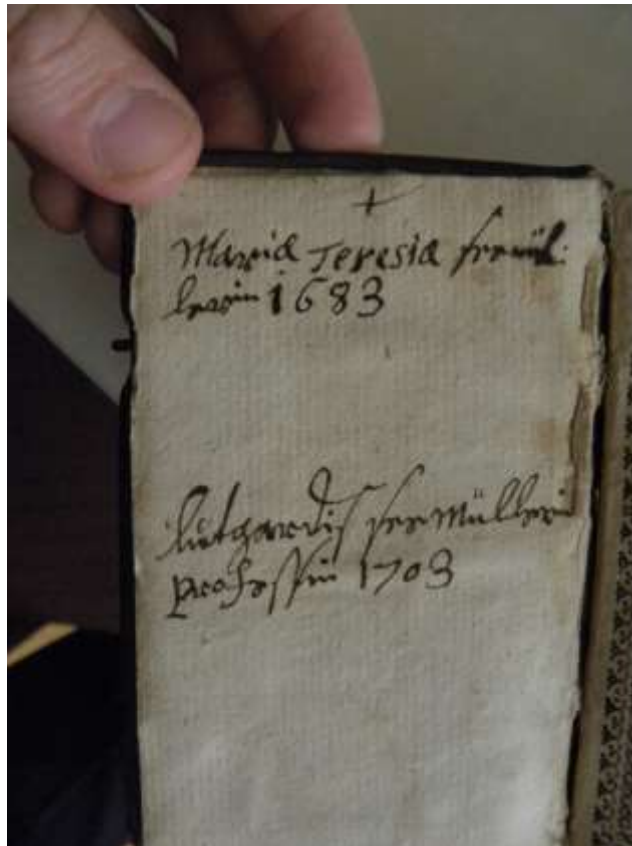 Maria Teresia semül:
lerin 1683
Lutgardis seemüllerin
professin 1703